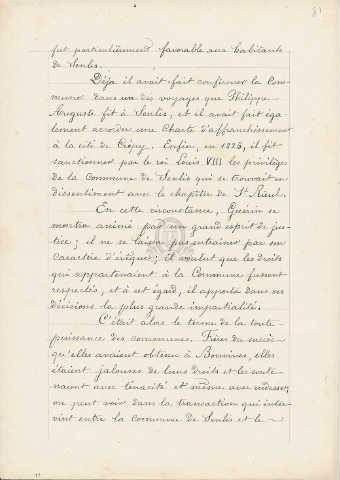 81
fut particulièrement favorable aux habitants
de Senlis.
Déjà il avait fait confirmer la Com-
mune dans un des voyages que Philippe
Auguste fit à Senlis, et il avait fait éga-
lement accorder une Charte d'affranchissement
à la cité de Crépy. Enfin, en 1225, il fit
sanctionner par le roi Louis VIII les privilèges
de la Commune de Senlis qui se trouvait en
dissentiment avec le chapitre de St Rieul.
En cette circonstance, Guérin se
montra animé par un grand esprit de jus-
tice; il ne se laissa pas entrainer par son
caractère d'évêque; il voulut que les droits
qui appartenaient à la Commune fussent
respectés, et à cet égard, il apporta dans ses
décisions la plus grande impartialité.
C'était alors le terme de la toute
puissance des communes. Fières du succès
qu'elles avaient obtenu à Bouvines, elles
étaient jalouses de leurs droits et les soute-
naient avec ténacité et même avec rudesse;
on peut voir dans la transaction qui inter-
vint entre la commune de Senlis et le